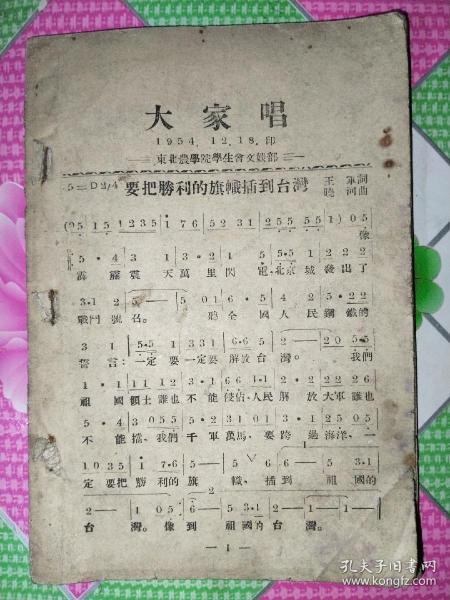 大家唱
1954.12.18.印
東北農學院學生會文娛部
5=D 2/4 要把勝利的旗幟插到台灣 王軍詞
曉河曲
(05 15 1235 i 76 5235 231 255 55 1) 05
像
5·4 3 1 5·4 3 1 2 1 5·51 2 2 2
霹靂震天萬里閃電、北京城發出了
3·1 2 5— 5 01 6·5 4 2 5·22
戰鬥號召。 聽全國人民鋼鐵的
3 1 5·51 1 331 6·65 2 2— 20 5·5
誓言:一定要一定要解放台灣。 我們
祖國領土誰也不能侵佔、人民解放大軍誰也
5·4 3 05 2 031 01 03 3·1 25 05
不能擋、我們千軍萬馬、要跨過海洋、一
1035 i 7·6 5— 5 6 6— 5 3·1
定要把勝利的旗幟、插到祖國的
台灣。像到祖國的台灣。
— 1 —
孔夫子旧书网
www.kongfz.com